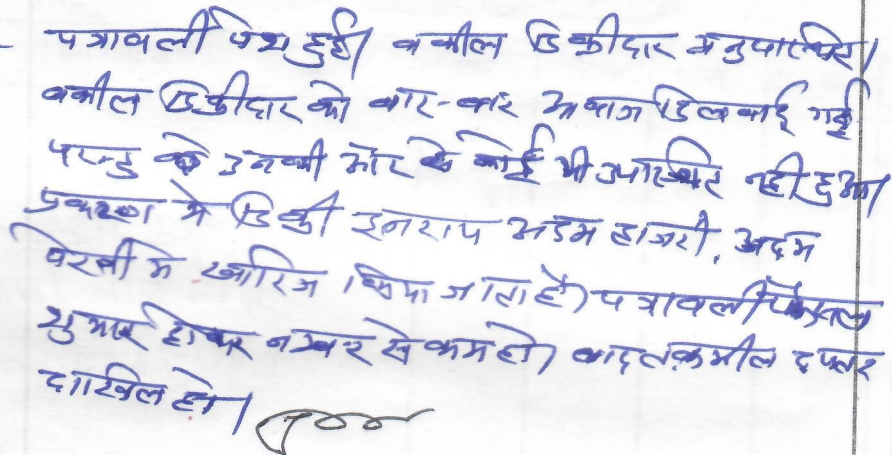 पत्रावली पेश हुई। वकील डिक्रीदार अनुपास्थित।
वकील डिक्रीदार को बार-बार आवाज दिलवाई गई
परन्तु उनकी ओर से कोई भी उपास्थित नही हुआ।
प्रकरण मे डिक्री इजराय अदम हाजरी, अदम
पेरवी मे खारिज किया जाता है। पत्रावली फैसल
शुमार होकर नम्बर से कम हो। बाद तकमील दफ्तर
दाखिल हो।